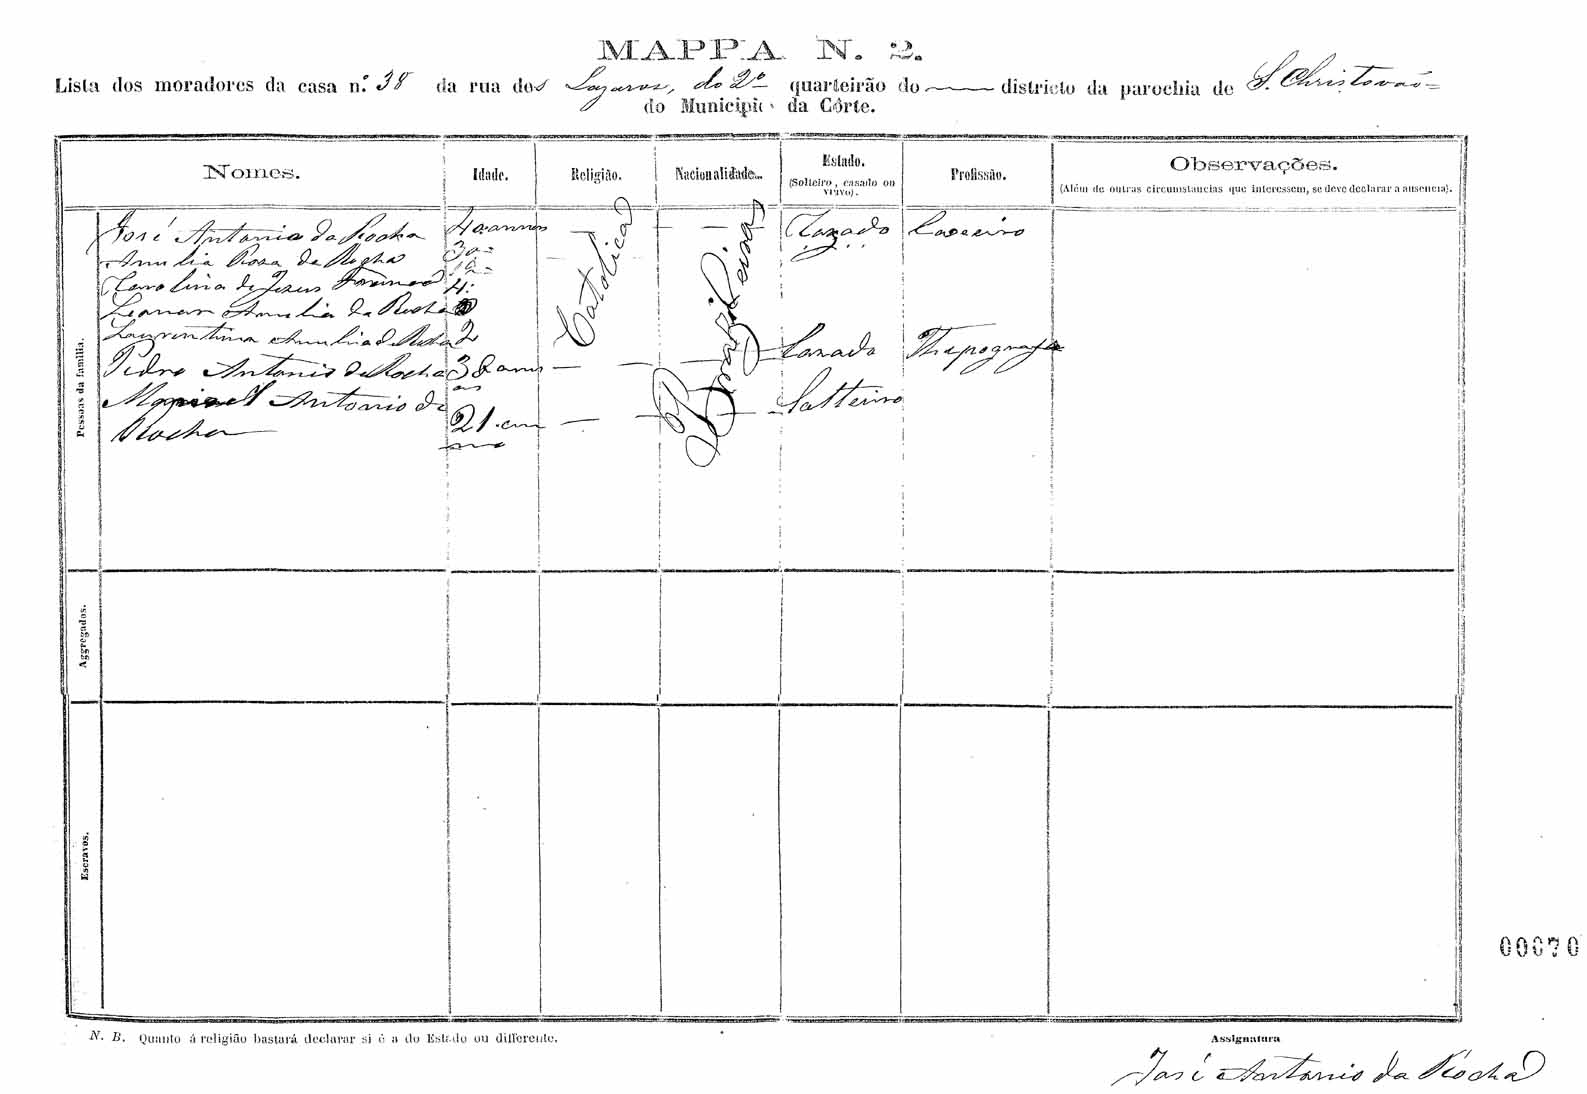 MAPPA N. 2.
Lista dos moradores da casa n.º 38 da rua dos Lazaros, do 2º quarteirão do — districto da parochia de S. Christovaõ
do Municipio da Côrte.
Nomes. Idade. Religião. Nacionalidade. Estado. Profissão. Observações.
(Solteiro, casado ou viuvo). (Além de outras circumstancias que interessem, se deve declarar a ausencia).
Pessoas da familia.
José Antonio da Rocha 40 annos Cazado
Amelia Roza da Rocha 30
Carolina de Jezus 12
Leonor Amelia da Rocha 4
Laurentina Amelia da Rocha 2
Pedro Antonio da Rocha 38 annos Cazado Thipographo
Manoel Antonio da
Rocha 21 annos Solteiro
Catolica
Brazileira
Aggregados.
Escravos.
00670
N. B. Quanto á religião bastará declarar si é a do Estado ou differente.
Assignatura
José Antonio da Rocha